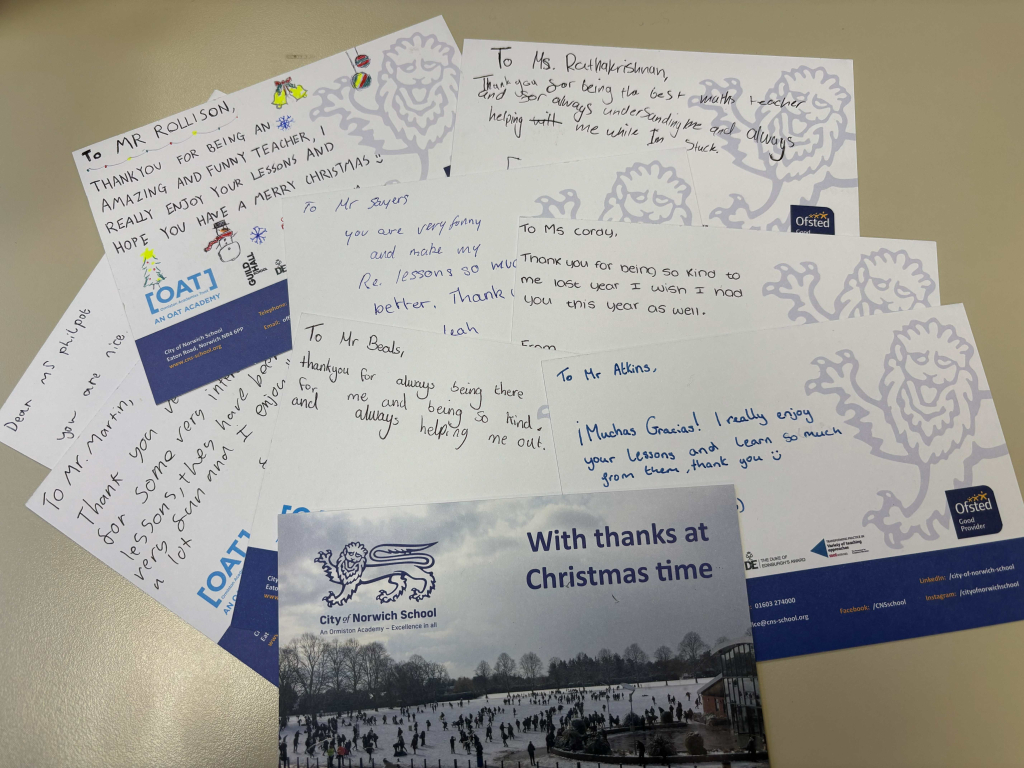 To MR ROLLISON,
THANKYOU FOR BEING AN
AMAZING AND FUNNY TEACHER, I
REALLY ENJOY YOUR LESSONS AND
HOPE YOU HAVE A MERRY CHRISTMAS
[OAT]
Ormiston Academies Trust
AN OAT ACADEMY
GUILD
HALL
DE
City of Norwich School
Eaton Road, Norwich NR4 6PP
www.cns-school.org
Telephone:
Email: off
To Ms. Rathakrishnan,
Thank you for being the best maths teacher
and for always understanding me and always
helping me while Im Stuck.
Ofsted
Good
To Mr Sayers
you are very funny
and make my
Re. lessons so muc
better. Thank
leah
To Ms cordy,
Thank you for being so kind to
me last year I wish I had
you this year as well.
From
Dear Ms Philpot
you are nice.
To Mr. Martin,
Thank you ve
for some very inter
lessons, they have been
very fun and I enjoy
a lot
[OAT]
To Mr Beals,
thankyou for always being there
for me and being so kind.
and always helping me out.
To Mr Atkins,
¡Muchas Gracias! I really enjoy
your lessons and learn so much
from them, thank you
Ofsted
Good
Provider
DE
THE DUKE OF
EDINBURGH'S AWARD
Variety of teaching
approaches
: 01603 274000
ice@cns-school.org
Facebook: /CNSschool
LinkedIn: /city-of-norwich-school
Instagram: /cityofnorwichschool
With thanks at
Christmas time
City of Norwich School
An Ormiston Academy – Excellence in all